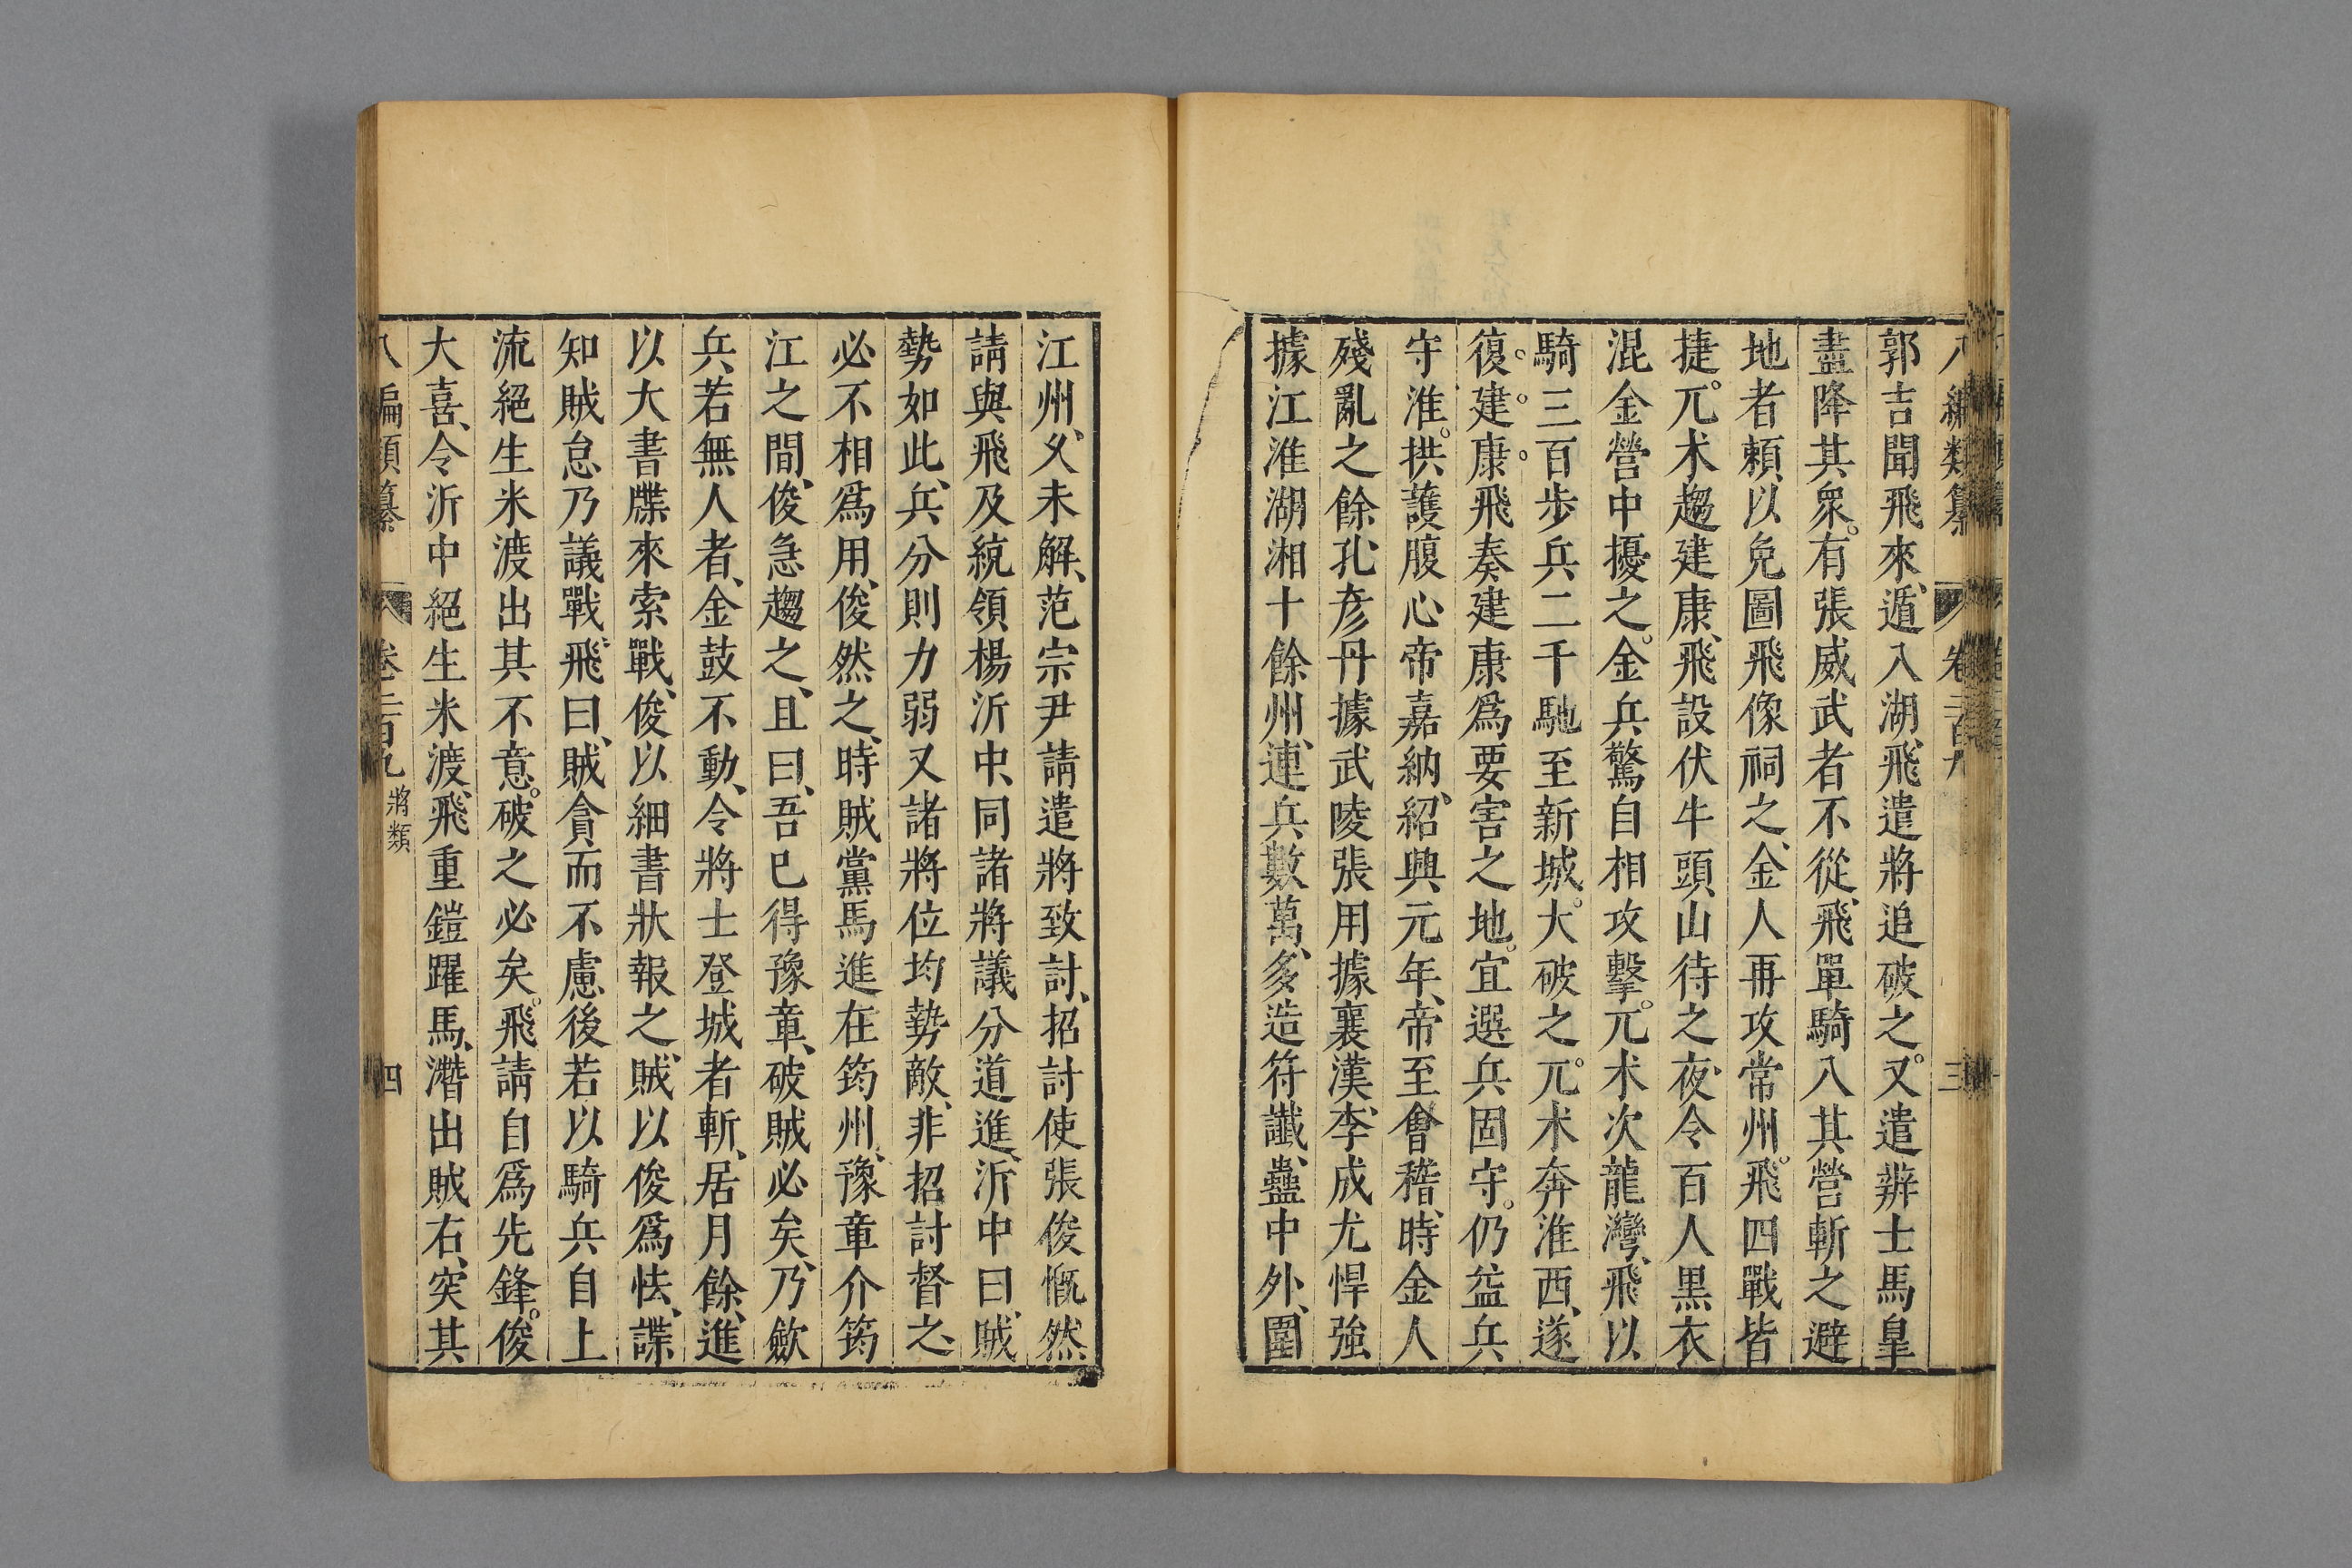 八編類纂 卷二百九 三
郭吉聞飛來、遁入湖、飛遣將追破之。又遣辨士馬皐
盡降其衆。有張威武者不從、飛單騎入其營斬之避
地者頼以免圖飛像祠之、金人再攻常州。飛四戰皆
捷。兀朮趨建康、飛設伏牛頭山待之夜、令百人黒衣
混金營中擾之。金兵驚自相攻擊。兀朮次龍灣、飛以
騎三百步兵二千馳至新城。大破之。兀朮奔淮西、遂
復。建。康。飛奏建康爲要害之地。宜選兵固守。仍益兵
守淮。拱護腹心帝嘉納、紹興元年、帝至會稽、時金人
殘亂之餘孔彦丹據武陵張用據襄漢、李成尤悍強
據江淮湖湘十餘州、連兵數萬、多造符讖、蠱中外、圍
江州、义未解、范宗尹請遣將致討、招討使張俊慨然
請與飛及統領楊沂中、同諸將議分道進、沂中曰、賊
勢如此、兵分則力弱又諸將位均勢敵、非招討督之、
必不相爲用、俊然之、時賊黨馬進在筠州、豫章介筠
江之間、俊急趨之、且曰、吾已得豫章、破賊必矣、乃歛
兵、若無人者、金鼓不動、令將士登城者斬、居月餘、進
以大書牒來索戰、俊以細書狀報之、賊以俊爲怯、諜
知賊怠乃議戰。飛曰、賊貪而不慮後若以騎兵自上
流絕生米渡出其不意。破之必矣。飛請自爲先鋒。俊
大喜、令沂中絕生米渡、飛重鎧躍馬、潛出賊右、突其
八編類纂 卷二百九 將類 四